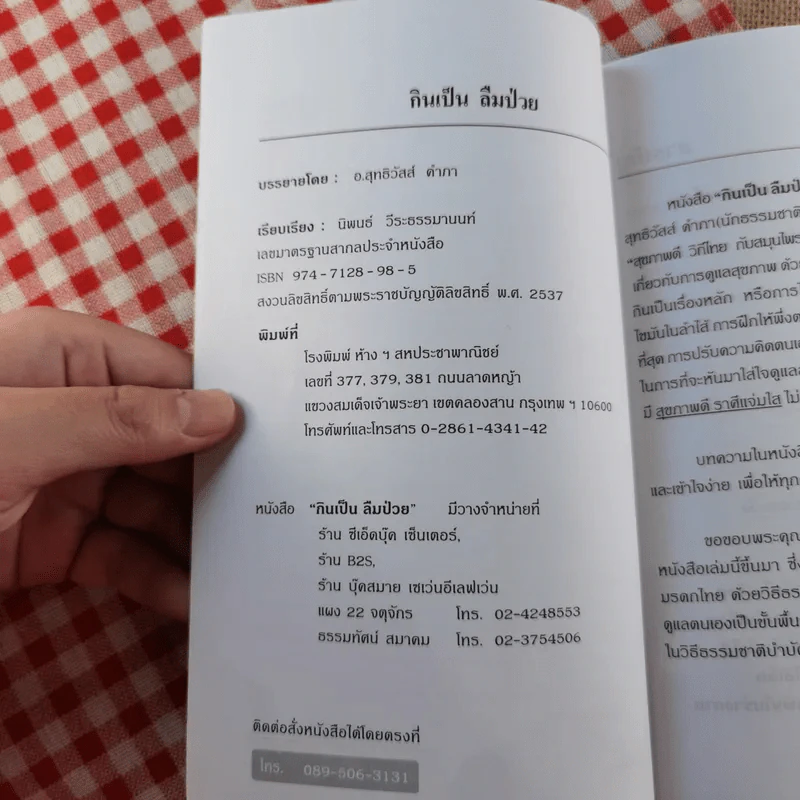 กินเป็น ลืมป่วย
บรรยายโดย : อ.สุทธิวัสส์ คำภา
เรียบเรียง : นิพนธ์ วีระธรรมานนท์
เลขมาตรฐานสากลประจำหนังสือ
ISBN 974-7128-98-5
สงวนลิขสิทธิ์ตามพระราชบัญญัติลิขสิทธิ์ พ.ศ. 2537
พิมพ์ที่
โรงพิมพ์ ห้าง ฯ สหประชาพาณิชย์
เลขที่ 377, 379, 381 ถนนลาดหญ้า
แขวงสมเด็จเจ้าพระยา เขตคลองสาน กรุงเทพ ฯ 10600
โทรศัพท์และโทรสาร 0-2861-4341-42
หนังสือ "กินเป็น ลืมป่วย" มีวางจำหน่ายที่
ร้าน ซีเอ็ดบุ๊ค เซ็นเตอร์,
ร้าน B2S,
ร้าน บุ๊คสมาย เซเว่นอีเลฟเว่น
แผง 22 จตุจักร โทร. 02-4248553
ธรรมทัศน์ สมาคม โทร. 02-3754506
ติดต่อสั่งหนังสือได้โดยตรงที่
โทร. 089-506-3131
หนังสือ "กินเป็น ลืมป
สุทธิวัสส์ คำภา(นักธรรมชาติ
"สุขภาพดี วิถีไทย กับสมุนไพร
เกี่ยวกับการดูแลสุขภาพ ด้ว
กินเป็นเรื่องหลัก หรือการ
ไขมันในลำไส้ การฝึกให้พึ่งต
ที่สุด การปรับความคิดตนเ
ในการที่จะหันมาใส่ใจดูแล
มี สุขภาพดี ราศีแจ่มใส ไม่
บทความในหนังสื
และเข้าใจง่าย เพื่อให้ทุก
ขอขอบพระคุณ
หนังสือเล่มนี้ขึ้นมา ซึ่
มรดกไทย ด้วยวิธีธร
ดูแลตนเองเป็นขั้นพื้น
ในวิธีธรรมชาติบำบัด